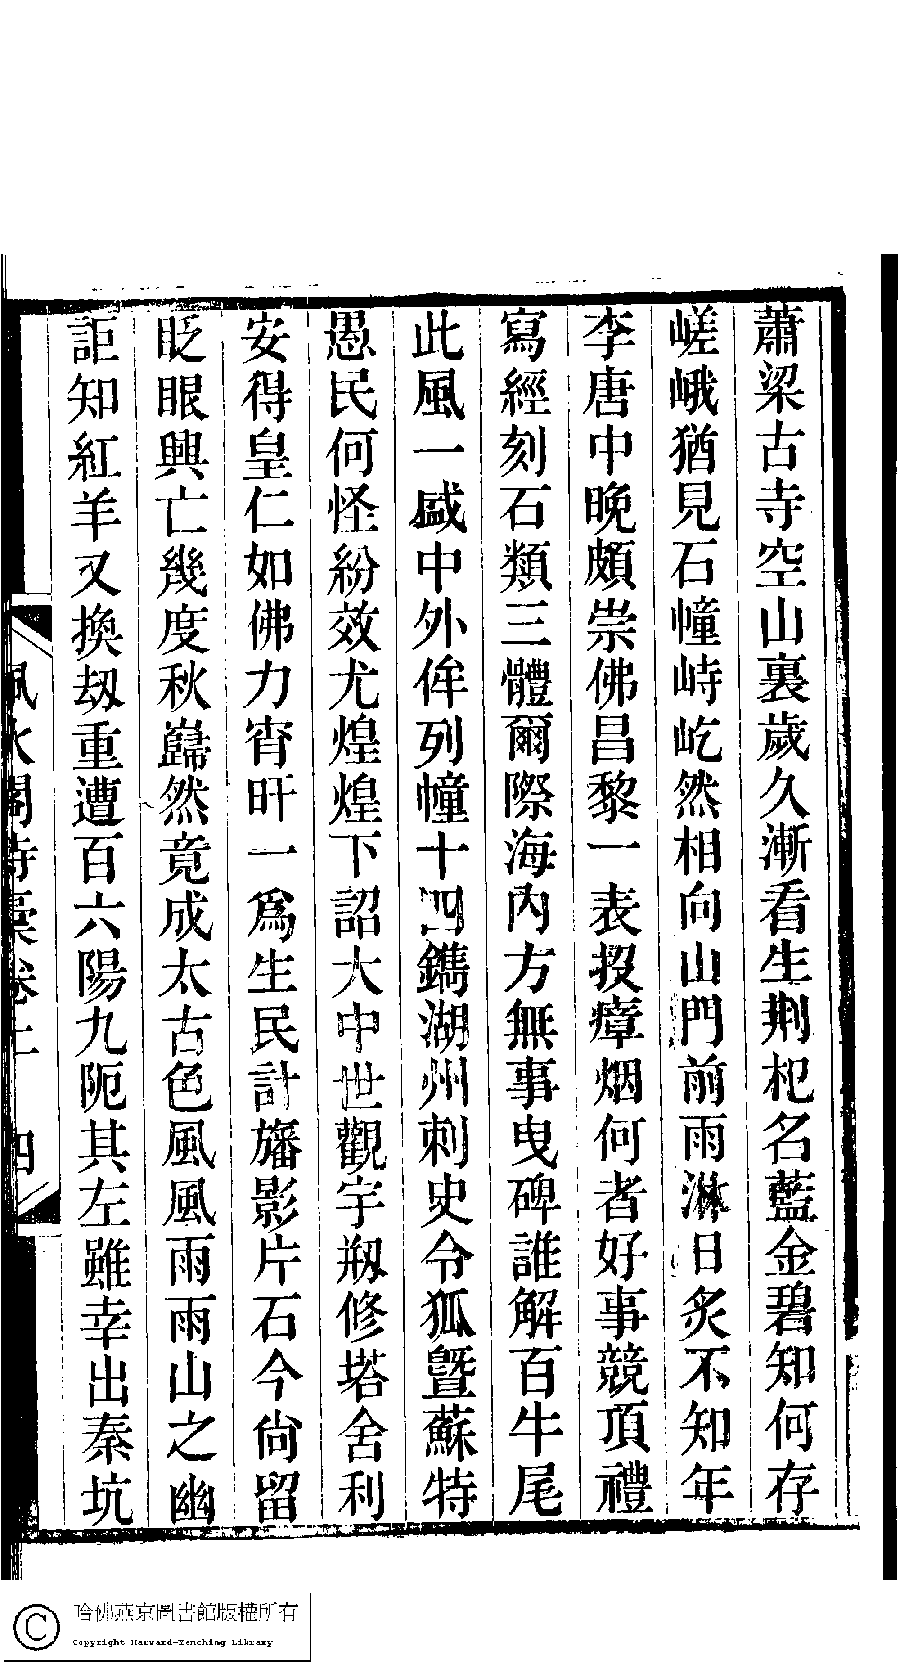 蕭梁古寺空山裏歲久漸看生荆杞名藍金碧知何存
嵯峨猶見石幢峙屹然相向山門前雨淋日炙不知年
李唐中晚頗崇佛昌黎一表投瘴烟何者好事競頂禮
寫經刻石類三體爾際海內方無事曳碑誰解百牛尾
此風一盛中外侔列幢十四鐫湖州刺史令狐暨蘇特
愚民何怪紛效尤煌煌下詔大中世觀宇剏修塔舍利
安得皇仁如佛力宵旰一爲生民計旛影片石今尙留
眨眼興亡幾度秋巋然竟成太古色風風雨雨山之幽
詎知紅羊又換刼重遭百六陽九阨其左雖幸出秦坑
風水閣詩稾卷上 四
哈佛燕京圖書館版權所有
Copyright Harvard-Yenching Library